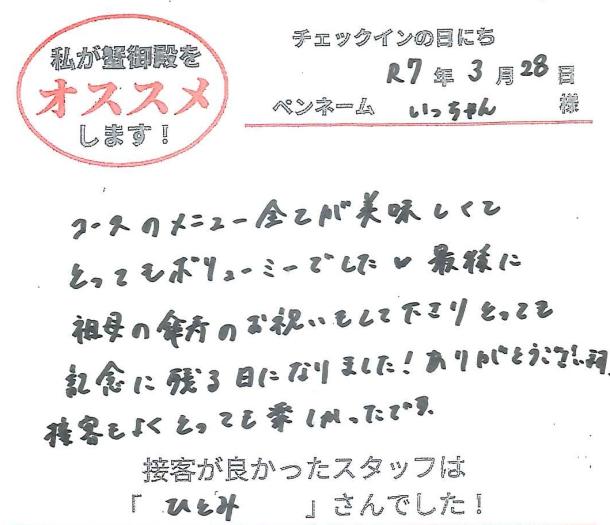 私が蟹御殿を
オススメ
します！
チェックインの日にち
R7年3月28日
ペンネーム いっちゃん 様
コースのメニュー全てが美味しくて
とってもボリューミーでした♥ 最後に
祖母の傘寿のお祝いもして下さりとっても
記念に残る日になりました！ありがとうございます。
接客もよくとっても楽しかったです。
接客が良かったスタッフは
「 ひとみ 」さんでした！